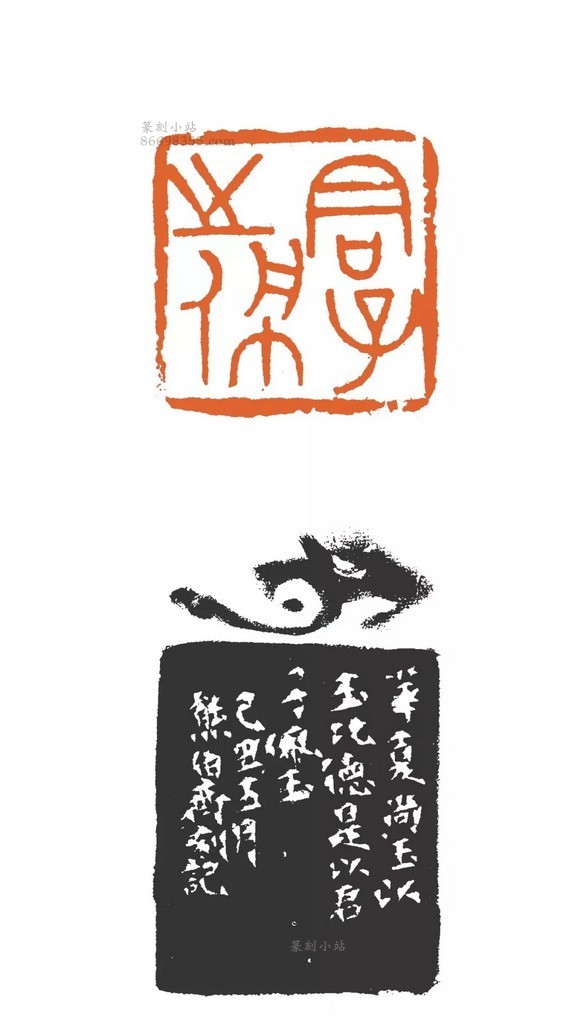 篆刻小站
86698353.com
華夏尚玉以
玉比德是以君
子佩玉
己丑五月
熊伯齊刻記
篆刻小站